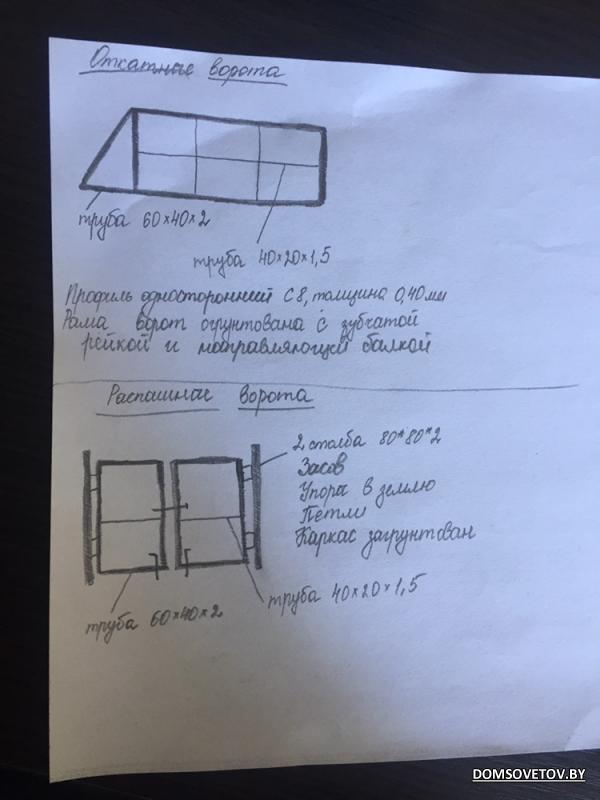 Откатные ворота
труба 60×40×2
труба 40×20×1,5
Профиль односторонний С8, толщина 0,40мм
Рама ворот огрунтована с зубчатой
рейкой и направляющей балкой
Распашные ворота
2 столба 80*80*2
Засов
Упоры в землю
Петли
Каркас загрунтован
труба 40×20×1,5
труба 60×40×2
DOMSOVETOV.BY